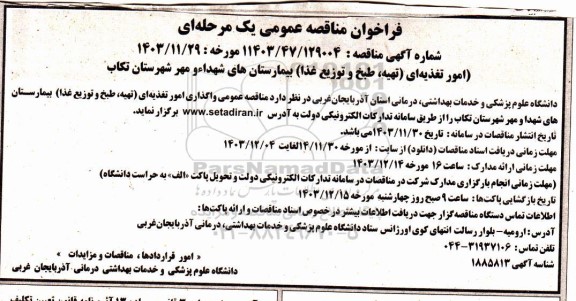 فراخوان مناقصه عمومی یک مرحله‌ای
شماره آگهی مناقصه : ۱۱۴۰۳/۴۷/۱۲۹۰۰۴ مورخه : ۱۴۰۳/۱۱/۲۹
(امور تغذیه‌ای (تهیه، طبخ و توزیع غذا) بیمارستان های شهداءو مهر شهرستان تکاب
دانشگاه علوم پزشکی و خدمات بهداشتی، درمانی استان آذربایجان‌غربی در نظر دارد مناقصه عمومی واگذاری امور تغذیه‌ای (تهیه، طبخ و توزیع غذا) بیمارستان
های شهدا و مهر شهرستان تکاب را از طریق سامانه تدارکات الکترونیکی دولت به آدرس www.setadiran.ir برگزار نماید.
تاریخ انتشار مناقصات در سامانه : تاریخ ۱۴۰۳/۱۱/۳۰می باشد.
مهلت زمانی دریافت اسناد مناقصات (دانلود) از سایت : از مورخه ۱۴/۱۱/۳۰لغایت ۱۴۰۳/۱۲/۰۴
مهلت زمانی ارائه مدارک : ساعت ۱۶ مورخه ۱۴۰۳/۱۲/۱۴
(مهلت زمانی انجام بارگزاری مدارک شرکت در مناقصات در سامانه تدارکات الکترونیکی دولت و تحویل پاکت «الف» به حراست دانشگاه)
تاریخ بازگشایی پاکت‌ها : ساعت ۹ صبح روز چهارشنبه مورخه ۱۴۰۳/۱۲/۱۵
اطلاعات تماس دستگاه مناقصه گزار جهت دریافت اطلاعات بیشتر در خصوص اسناد مناقصات و ارائه پاکت‌ها :
آدرس : ارومیه- بلوار رسالت انتهای کوی اورژانس ستاد دانشگاه علوم پزشکی و خدمات بهداشتی، درمانی آذربایجان‌غربی
تلفن تماس : ۳۱۹۳۷۱۰۶-۰۴۴
شناسه آگهی ۱۸۸۵۸۱۳
« امور قراردادها ، مناقصات و مزایدات »
دانشگاه علوم پزشکی و خدمات بهداشتی درمانی آذربایجان غربی
ParsNamadData